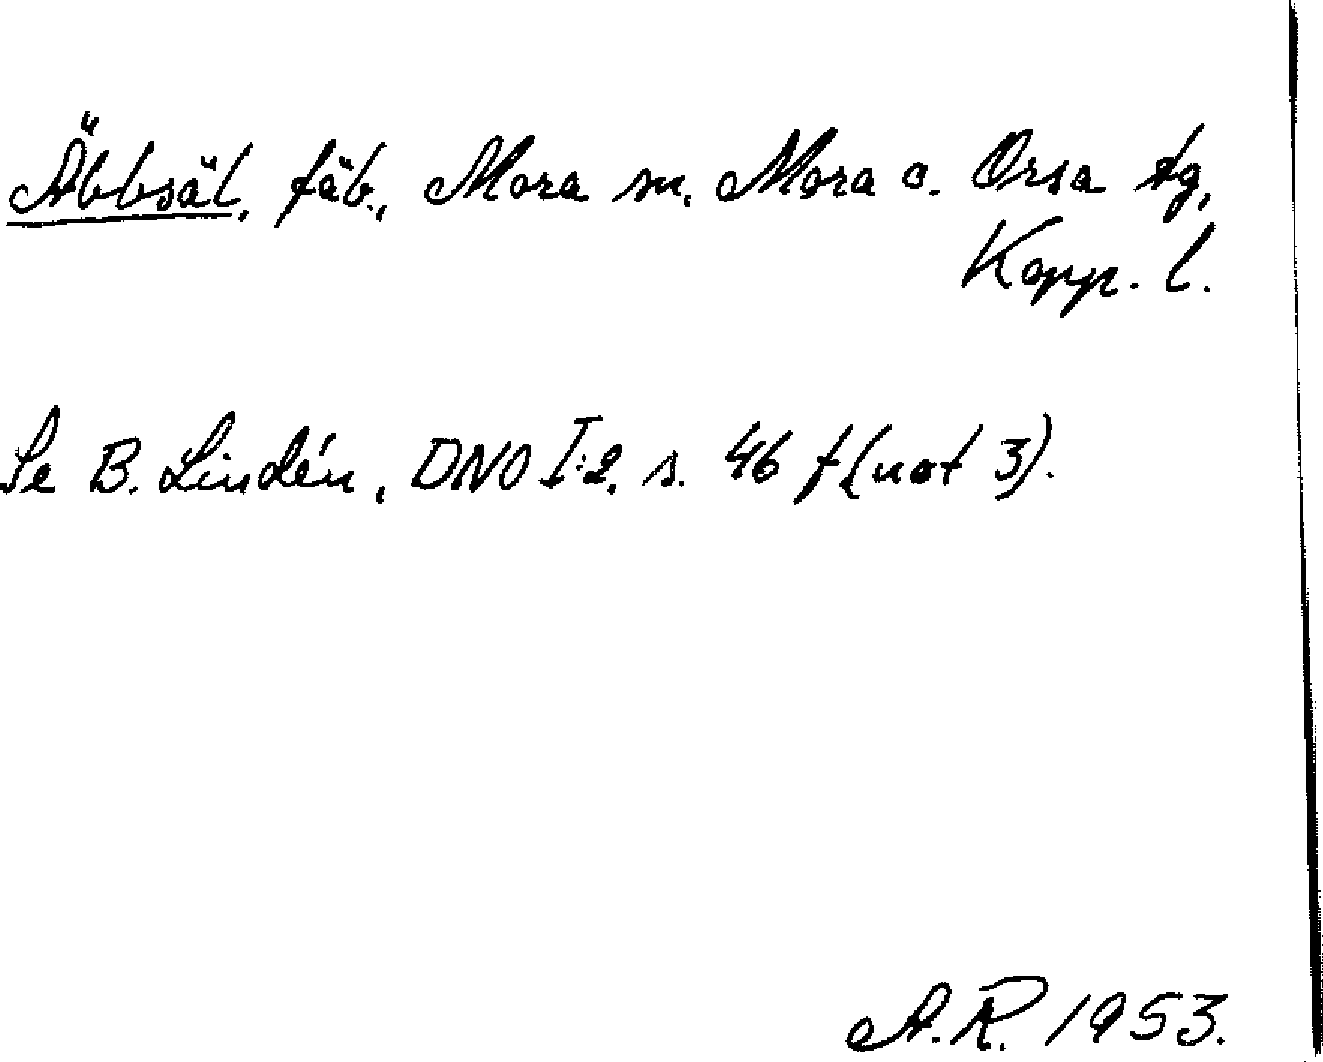 Äbbsäl, fäb., Mora sn, Mora o. Orsa tg,
Kopp. l.
Se B. Lindén, DNO I:2, s. 46 f (not 3).
A.R. 1953.